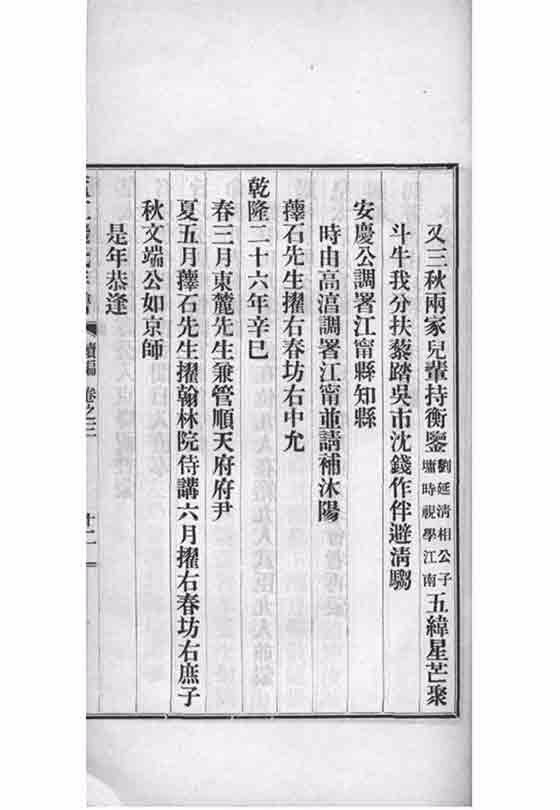 又三秋兩家兒輩持衡鑒劉延清相公子墉時視學江南五緯星芒聚
斗牛我分扶藜踏吳市沈錢作伴避淸騶
安慶公調署江甯縣知縣
時由高湻調署江甯並請補沐陽
蘀石先生擢右春坊右中允
乾隆二十六年辛巳
春三月東麓先生兼管順天府府尹
夏五月蘀石先生擢翰林院侍講六月擢右春坊右庶子
秋文端公如京師
是年恭逢
續編 卷之三 十二